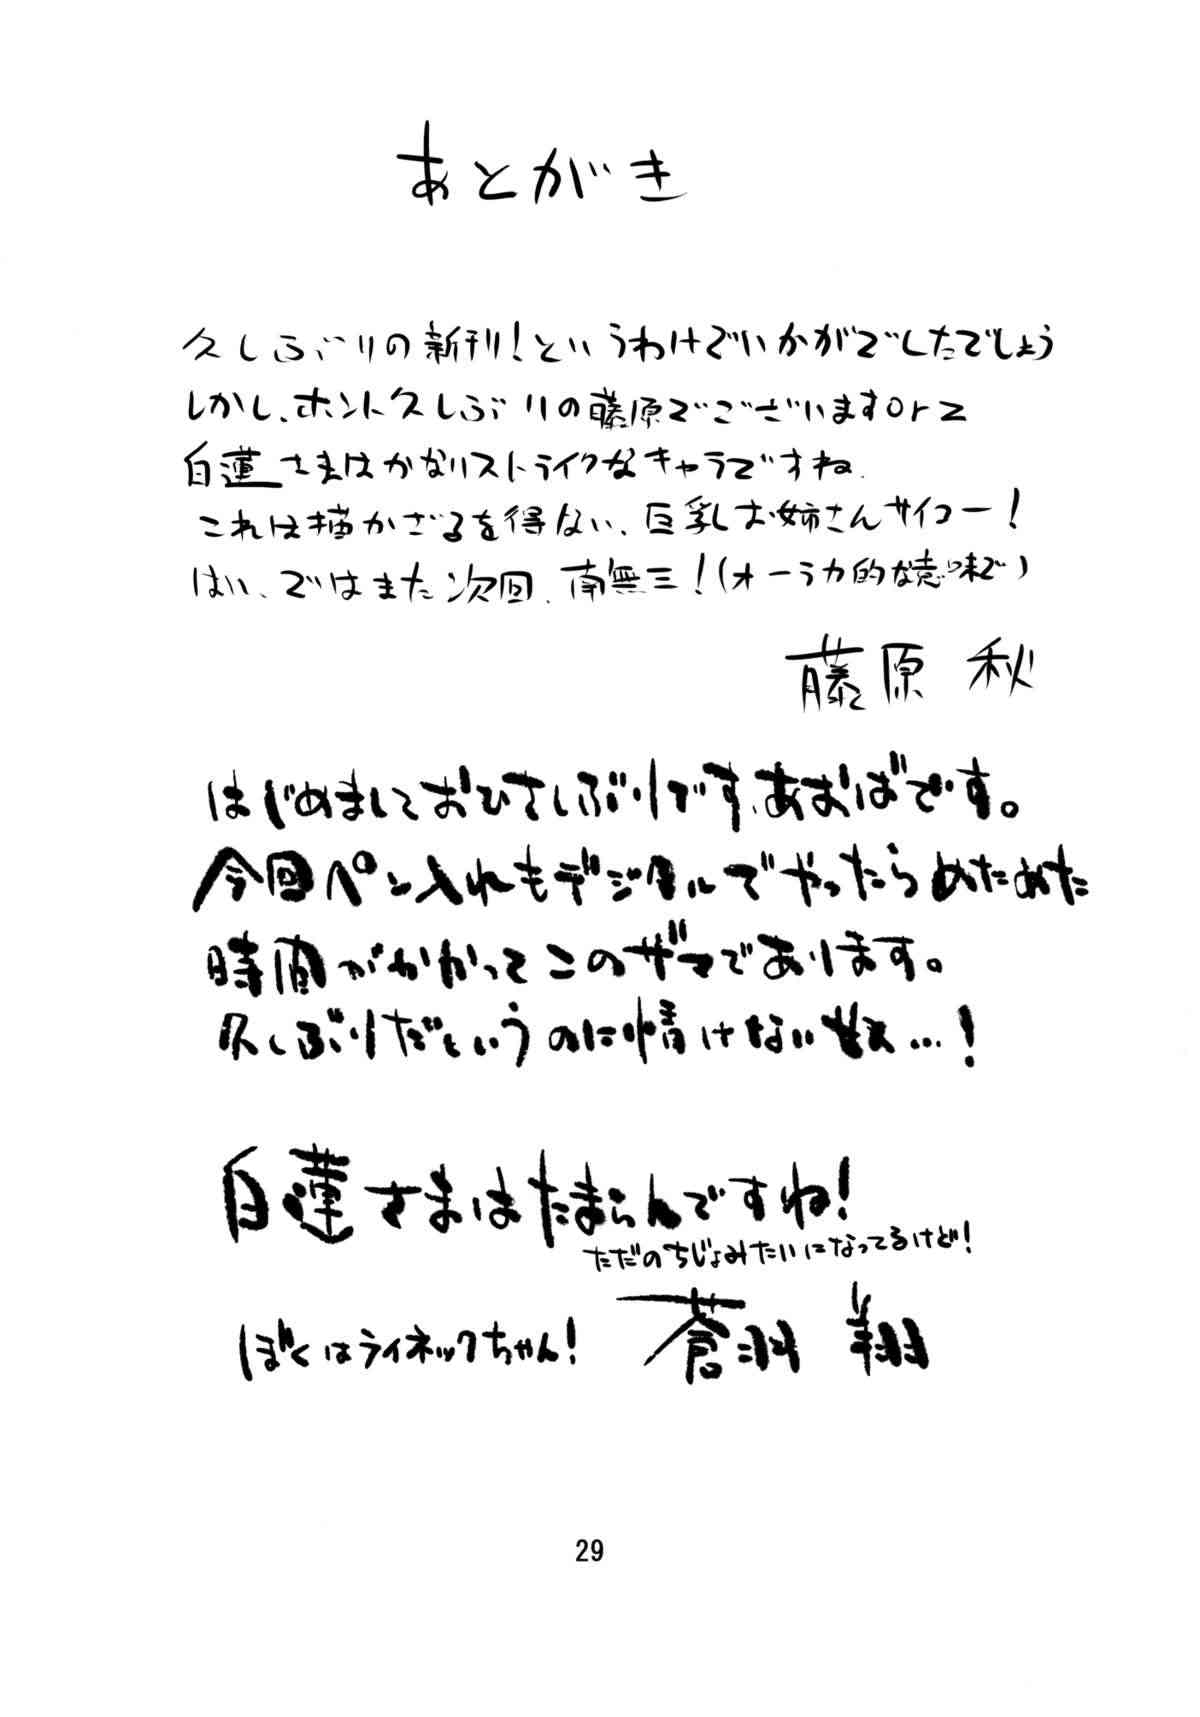 あとがき
久しぶりの新刊!というわけでいかがでしたでしょう
しかし、ホント久しぶりの藤原でございますorz
白蓮さまはかなりストライクなキャラですね.
これは描かざるを得ない、巨乳お姉さんサイコー!
はい、ではまた次回、南無三!(オーラカ的な意味で)
藤原 秋
はじめましておひさしぶりです、あおばです。
今回ペン入れもデジタルでやったらめためた
時間がかかってこのザマであります。
久しぶりだというのに情けない…!
白蓮さまはたまらんですね!
ただのちじょみたいになってるけど!
ぼくはライネックちゃん!
蒼羽 翔
29